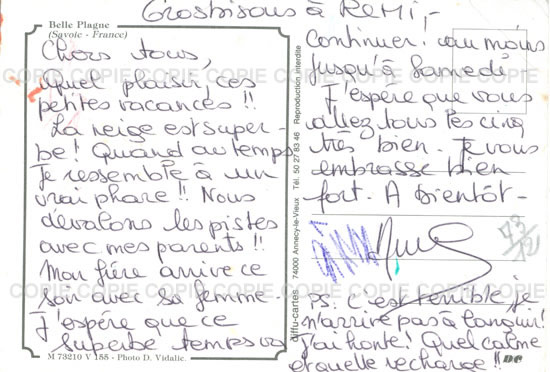 Grosbisous à REMI,-
Belle Plagne
(Savoie - France)
Chers tous,
quel plaisir, ces
petites vacances !!
La neige est super-
be! Quand au temps
Je ressemble à un
vrai phare !! Nous
dévalons les pistes
avec mes parents !!
Mon frère arrive ce
soir avec sa femme.
J'espère que ce
superbe temps va
M 73210 V 155 - Photo D. Vidalie.
diffu-cartes 74000 Annecy-le-Vieux Tél. 50 27 83 46 Reproduction interdite
continuer! au moins
jusqu'à Samedi
J'espère que vous
allez tous les cinq
très bien. Je vous
embrasse bien
fort. A Bientôt -
73/
PS: c'est terrible je
n'arrive pas à languir!
J'ai honte! Quel calme
et quelle recharge !!
COPIE COPIE COPIE COPIE COPIE COPIE
COPIE COPIE COPIE COPIE COPIE COPIE
COPIE COPIE COPIE COPIE COPIE COPIE